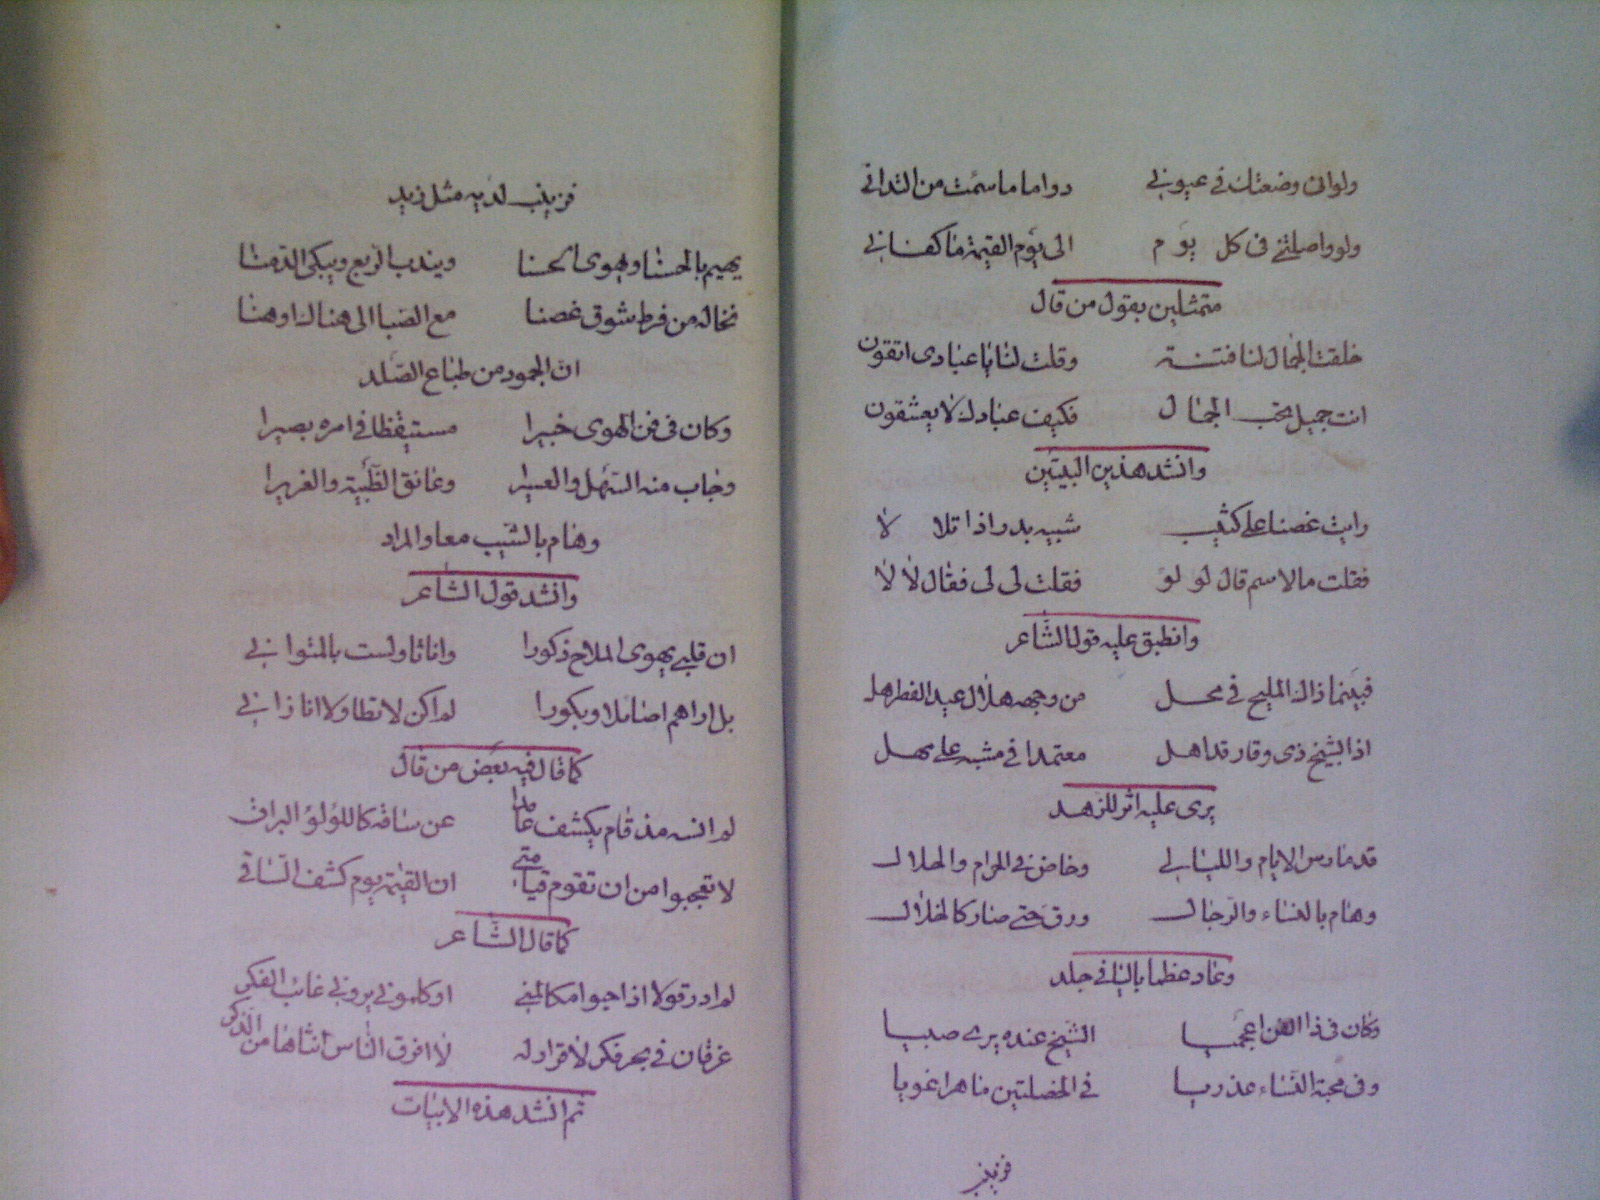 ولو انى وضعتك فى عيونى دواما ما سئمت من التدانى
ولو واصلتنى فى كل يوم الى يوم القيمة ما كفانى
متمثلين بقول من قال
خلقت الجمال لنا فتنة وقلت لنا يا عبادى اتقون
انت جميل تحب الجمال فكيف عبادك لا يعشقون
وانشد هذين البيتين
رايت غصنا على كثيب شبيه بدر اذا تلالا
فقلت ما الاسم قال لولو فقلت لى لى فقال لا لا
وانطبق عليه قول الشاعر
فبينما ذاك المليح فى محل من وجهه هلال عيد الفطر هل
اذا الشيخ ذى وقار قد اهل معتمدا فى مشيه على مهل
يرى عليه اثر للزهد
قد مارس الايام والليالى وخاض فى الحرام والحلال
وهام بالنساء والرجال ورق حتى صار كالخلال
وعاد عظما باليا فى جلد
وكان فى ذا الفن اعجميا الشيخ عنده يرى صبيا
وفى محبة النساء عذريا فى الخصلتين ماهرا غويا
فزينب
فزينب لديه مثل زيد
يهيم بالحسنا ويهوى الحسنا ويندب الربع ويبكى الدمنا
تخاله من فرط شوق غصنا مع الصبا الى هناك او هنا
ان الجمود من طباع الصلد
وكان فى فن الهوى خبيرا مستيقظا فى امره بصيرا
وجاب منه السهل والعسير وعانق الظبية والغريرا
وهام بالشيب معا والمراد
وانشد قول الشاعر
ان قلبى يهوى الملاح ذكورا واناثا ولست بالمتوانى
بل اراهم اصائلا وبكورا لم اكن لائطا ولا انا زانى
كما قال فيه بعض من قال
لم انسه مذ قام يكشف عامدا عن ساقه كاللؤلؤ البراق
لا تعجبوا من ان تقوم قيامتى ان القيمة يوم كشف الساق
كما قال الشاعر
لم ادر قولا اذا جبوا مكالمنى او كلمونى يرونى غائب الفكر
غرقان فى بحر فكر لا قرار له لا افرق الناس انثاها من الذكر
ثم انشد هذه الابيات